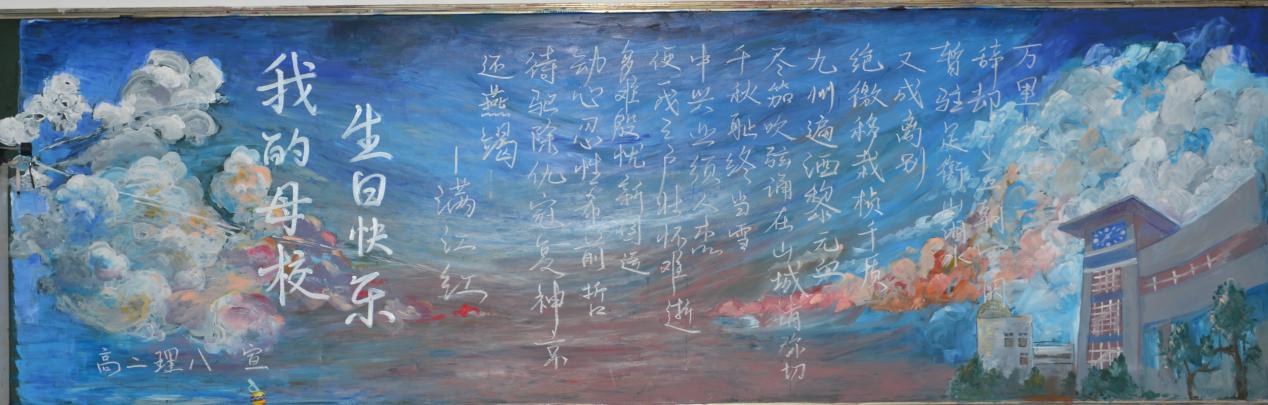 万里
辞却
暂驻足衡山湘水
又成离别
绝徼移栽桢干质
九州遍洒黎元血
尽笳吹弦诵在山城情弥切
千秋耻终当雪
中兴业须人杰
便成三户壮怀难逝
多难殷忧新国运
动心忍性希前哲
待驱除仇寇复神京
还燕碣
—满江红
生日快乐
我的母校
高二理八 宣